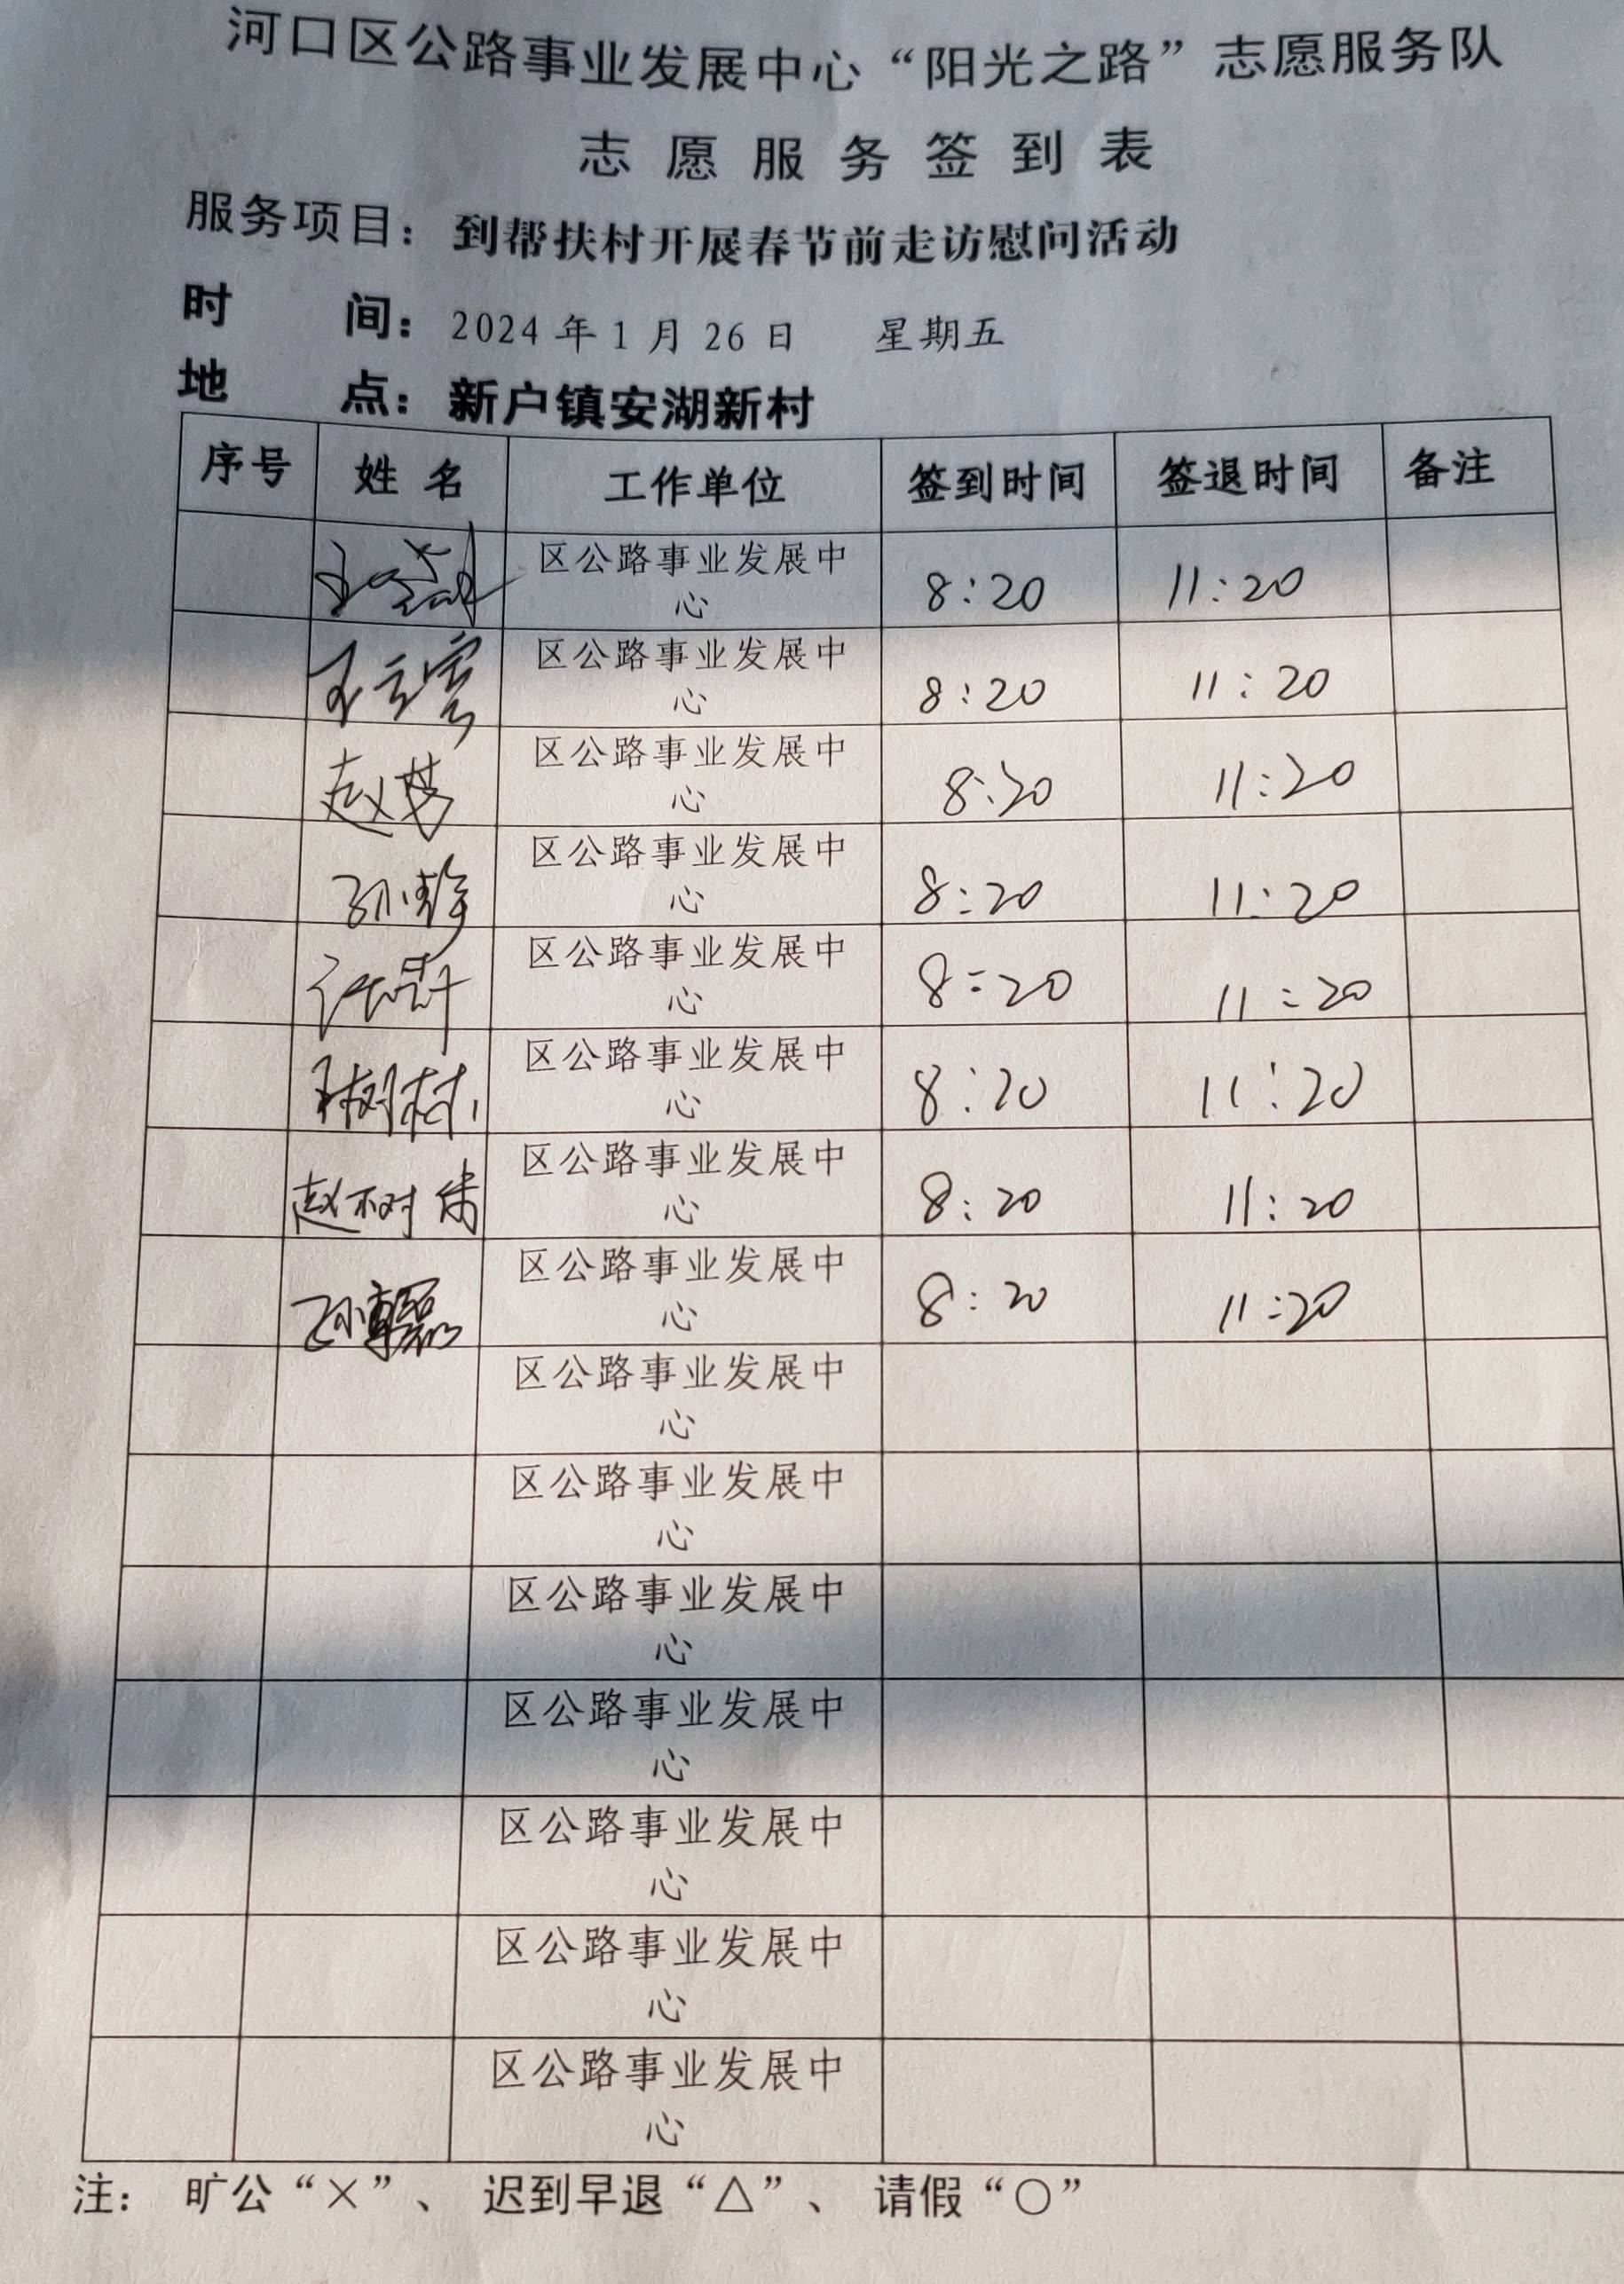 河口区公路事业发展中心“阳光之路”志愿服务队
志愿服务签到表
服务项目：到帮扶村开展春节前走访慰问活动
时 间：2024年1月26日 星期五
地 点：新户镇安湖新村
序号 姓名 工作单位 签到时间 签退时间 备注
区公路事业发展中
心
8:20 11:20
区公路事业发展中
心
8:20 11:20
区公路事业发展中
赵
心
8:20 11:20
区公路事业发展中
孙静
心
8:20 11:20
区公路事业发展中
心
8:20 11:20
区公路事业发展中
王树村
心
8:20 11:20
区公路事业发展中
赵树
心
8:20 11:20
区公路事业发展中
孙
心
8:20 11:20
区公路事业发展中
心
区公路事业发展中
心
区公路事业发展中
心
区公路事业发展中
心
区公路事业发展中
心
区公路事业发展中
心
区公路事业发展中
心
注： 旷公“×”、 迟到早退“△”、 请假“○”